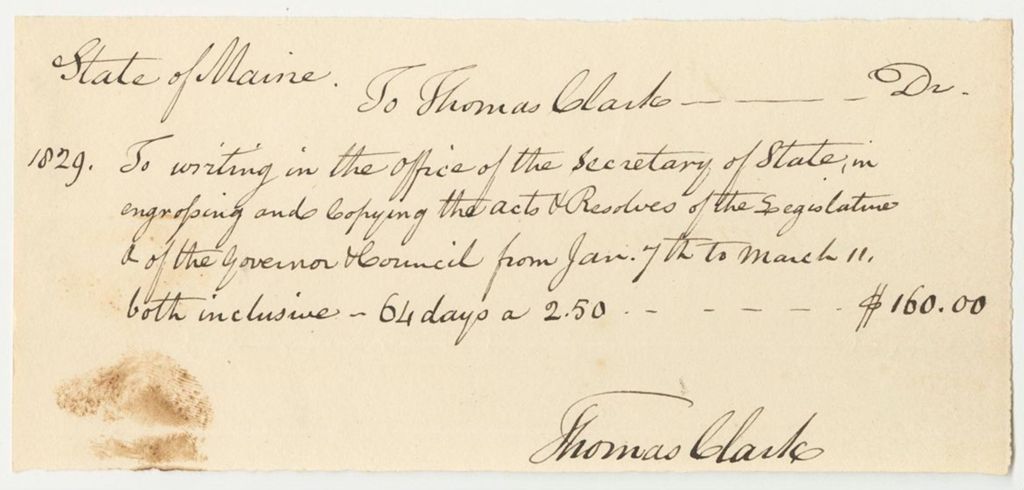 State of Maine.
To Thomas Clark — — - Dr.
1829. To writing in the office of the Secretary of State, in
engrossing and Copying the acts & Resolves of the Legislature
& of the Governor & Council from Jan. 7th to march 11.
both inclusive - 64 days a 2.50 - - - - - - $160.00
Thomas Clark